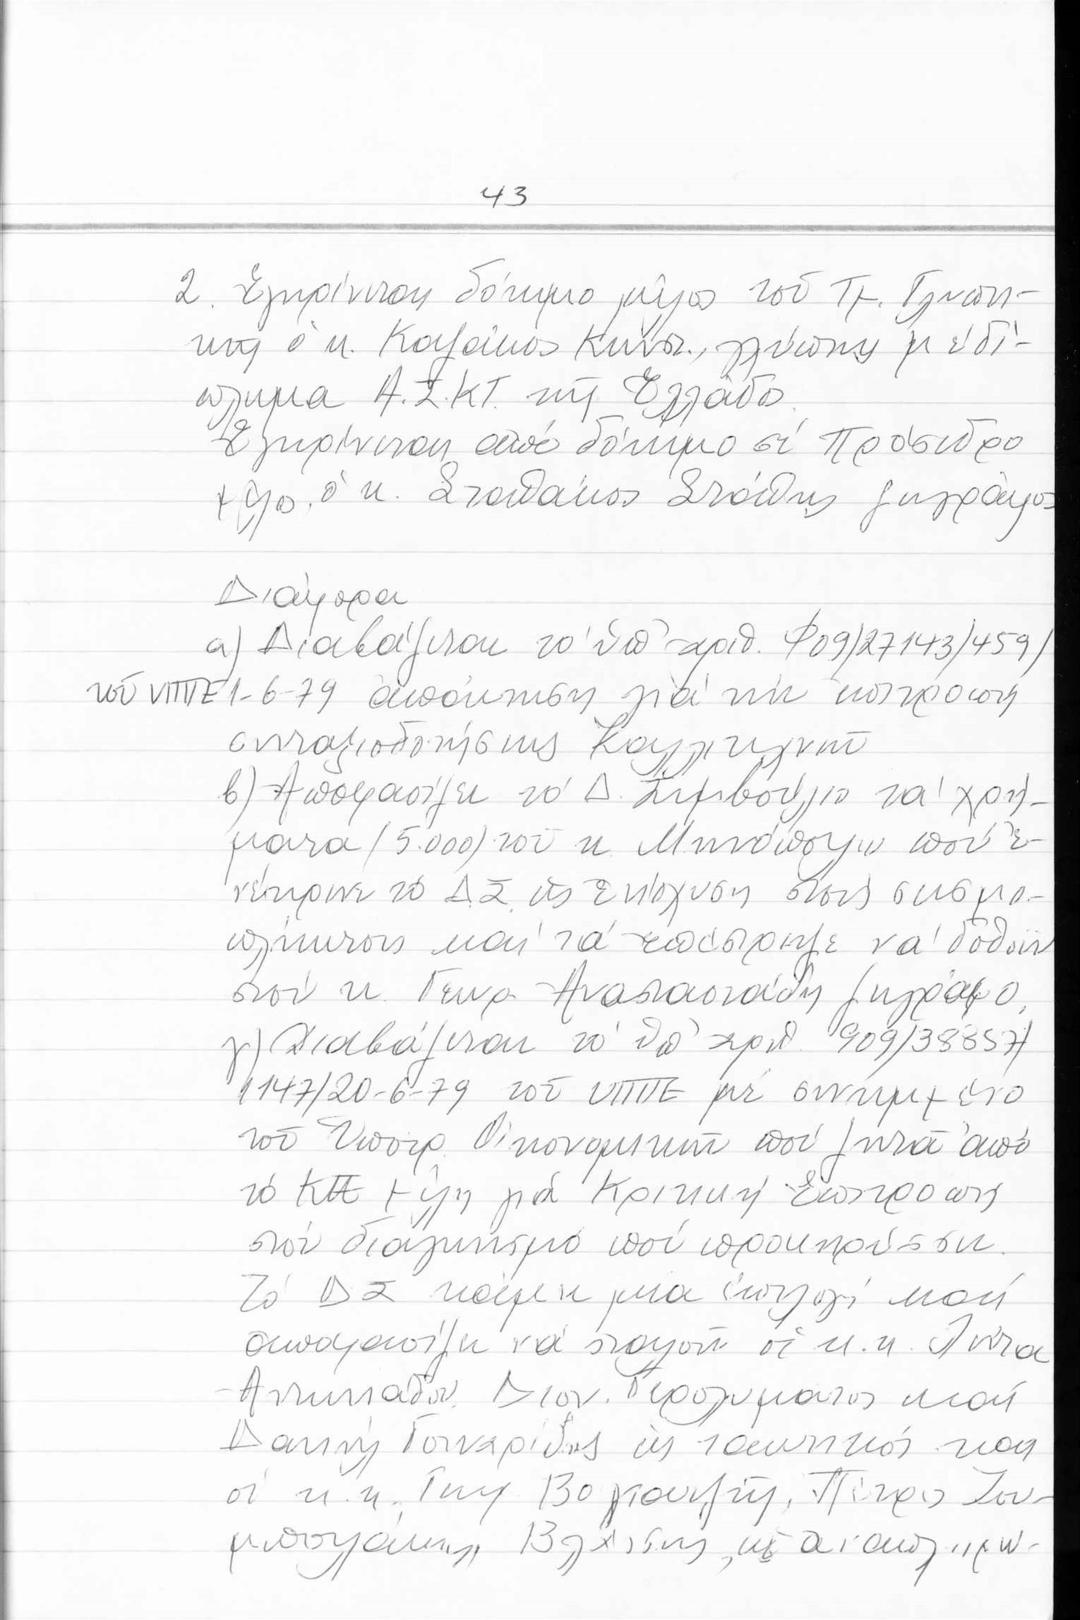 43
2. Ἐγκρίνεται δόκιμο μέλος τοῦ Τμ. Γλυπτι-
κῆς ὁ κ. Καζάκος Κων/στ., γλύπτης μὲ δί-
πλωμα Α.Σ.ΚΤ. τῆς Ἑλλάδο
Ἐγκρίνεται ἀπό δόκιμο σέ Πρόσεδρο
μέλος ὁ κ. Σταθάκος Στάθης ζωγράφος
Διάφορα
α) Διαβάζεται τό ὑπ' ἀριθ. Φ09/27143/459/
τοῦ ΥΠΠΕ 1-6-79 ἀπόκτηση γιά τήν ἐπιτροπή
συνταξιοδοτήσεως Καλλιτεχνῶν
β) Ἀποφασίζει τό Δ. Συμβούλιο τά χρή-
ματα (5.000) τοῦ κ. πού ἐ-
νέκρινε τό Δ.Σ. ὡς ἐνίσχυση στούς σεισμο-
πλήκτους καί τά ἐπέστρεψε νά δοθοῦν
στόν κ. Γεωρ. Ἀναστασιάδη ζωγράφο.
γ) Διαβάζεται τό ὑπ' ἀριθ. 909/38857/
1147/20-6-79 τοῦ ΥΠΠΕ μέ συνημμένο
τοῦ Ὑπουρ. Οἰκονομικῶν πού ζητᾶ ἀπό
τό ΚΤΕ μέλη γιά Κριτική Ἐπιτροπή
στόν διαγωνισμό πού προκηρύσσει.
Τό ΔΣ κάμει μιά ἐπιλογή καί
ἀποφασίζει νά σταλοῦν οἱ κ.κ.
Διον. Γερολυμάτος καί
Δανιήλ ὡς τακτικοί καί
οἱ κ.κ. Πέτρος Ζου-
μπουλάκης, Βλάσσης, ὡς ἀναπληρω-